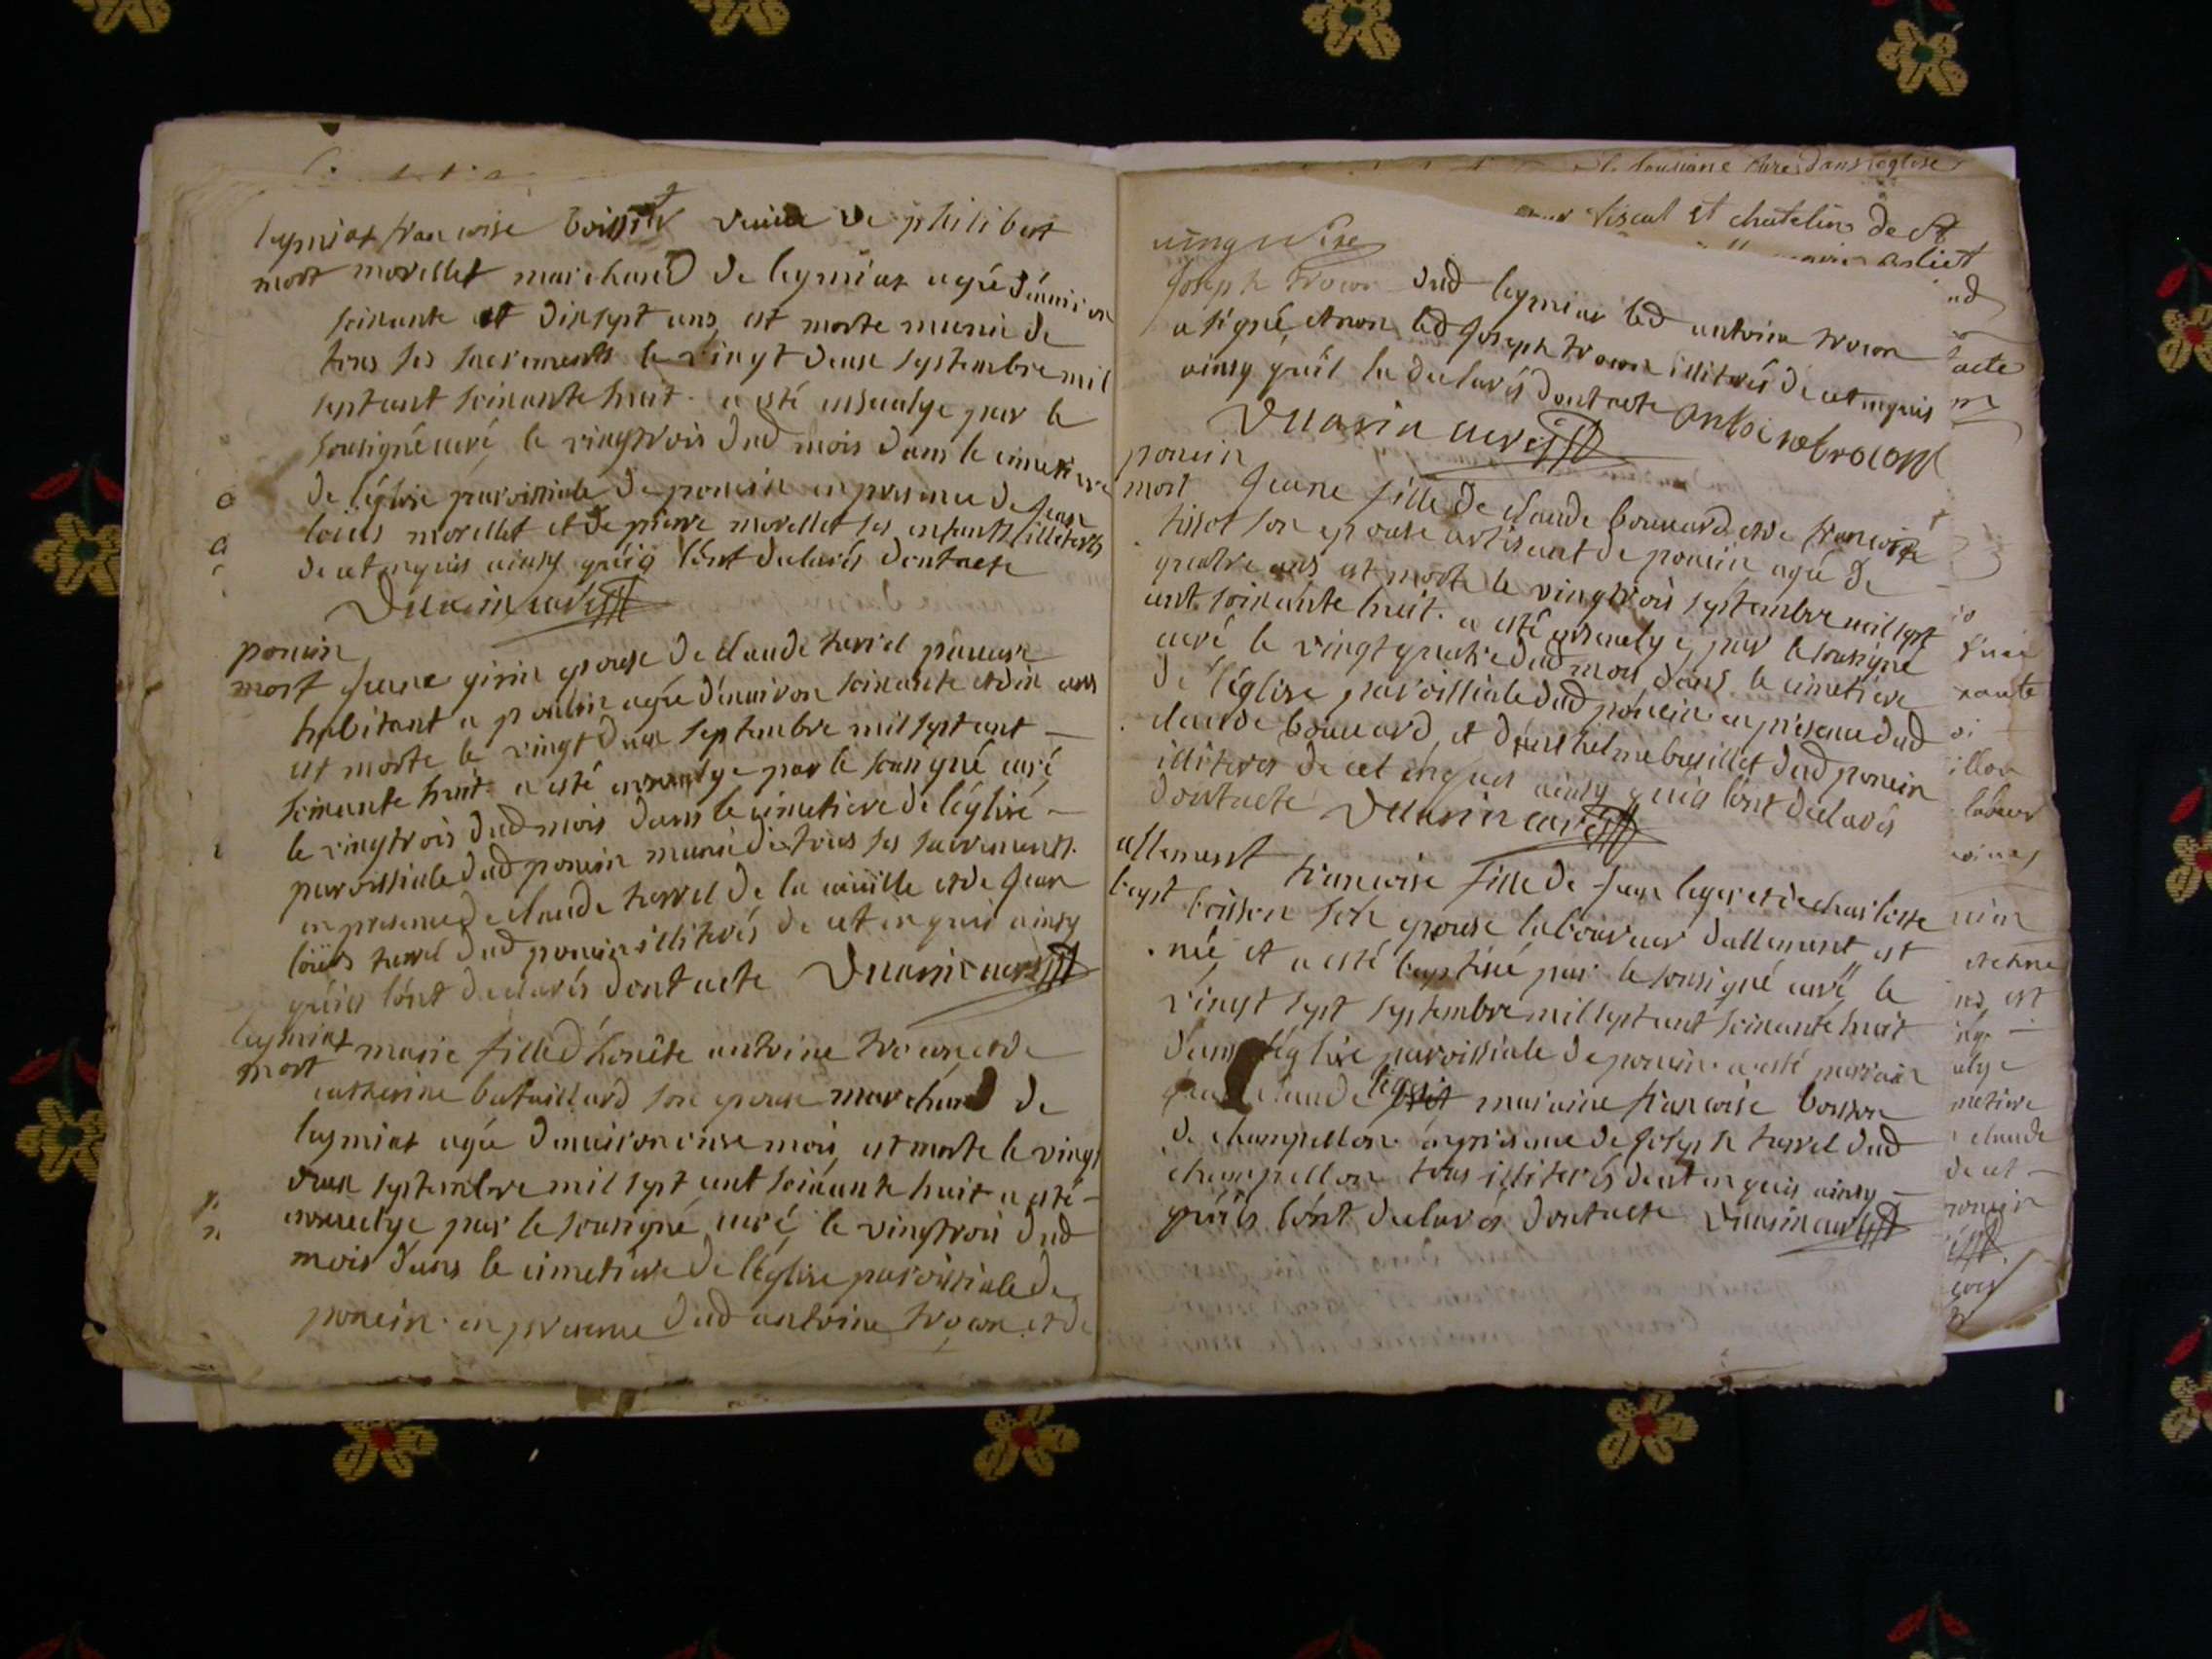 leymiat francoise boissat veuve de philibert
mort morellet marchand de leymiat agée d'environ
soixante et dixsept ans est morte munie de
tous ses sacrements le vingt deux septembre mil
septcent soixante huit. a esté ensevelye par le
sousigné curé le vingtrois dud mois dans le cimetiere
de l'église paroissiale de poncin en presence de jean
louis morellet et de pierre morellet ses enfants illiterés
de ce enquis ainsy qu'ils l'ont declarés dont acte
curé
poncin
mort jeane girin epouse de claude tarrel pauvre
habitant a poncin agée d'environ soixante et dix ans
est morte le vingt deux septembre mil septcent
soixante huit a esté ensevelye par le sousigné curé
le vingtrois dud mois dans le cimetiere de l'église
paroissiale dud poncin munie de tous ses sacrements.
en presence de claude tarrel de la et de jean
louis tarrel dud poncin illiterés de ce enquis ainsy
qu'ils l'ont declarés dont acte curé
leymiat marie fille d'honête antoine trocon et de
mort
catherine bataillard son epouse marchand de
leymiat agée d'environ onse mois est morte le vingt
deux septembre mil sept cent soixante huit a esté
ensevelye par le sousigné curé le vingtrois dud
mois dans le cimetiere de l'église paroissiale de
poncin. en presence dud antoine trocon et de
sousigné curé dans l'eglise
fiscal et chatelin de St
joseph trocon dud leymiat led antoine trocon
a signé, et non led joseph trocon illiterés de ce enquis
ainsy qu'il la declarés dont acte antoine trocon
curé
poncin
mort jeane fille de claude bouvard et de francoise
tissot son epouse artisant de poncin agée de
quatre ans est morte le vingtrois septembre mil sept
cent soixante huit. a esté ensevelye par le sousigné
curé le vingt quatre dud mois dans le cimetiere
de l'église paroissiale dud poncin en presence dud
claude bouvard et d'anthelme dud poncin
illiterés de ce enquis ainsy qu'ils l'ont declarés
dont acte curé
allement francoise fille de jean leger et de charlotte
bapt boisson son epouse laboureur d'allement est
née et a esté baptisée par le sousigné curé le
vingt sept septembre mil sept cent soixante huit
dans l'église paroissiale de poncin. a esté parrain
claude leger maraine francoise boisson
de champellon. en presence de joseph tarrel dud
champellon tous illiterés de ce enquis ainsy
qu'ils l'ont declarés dont acte curé